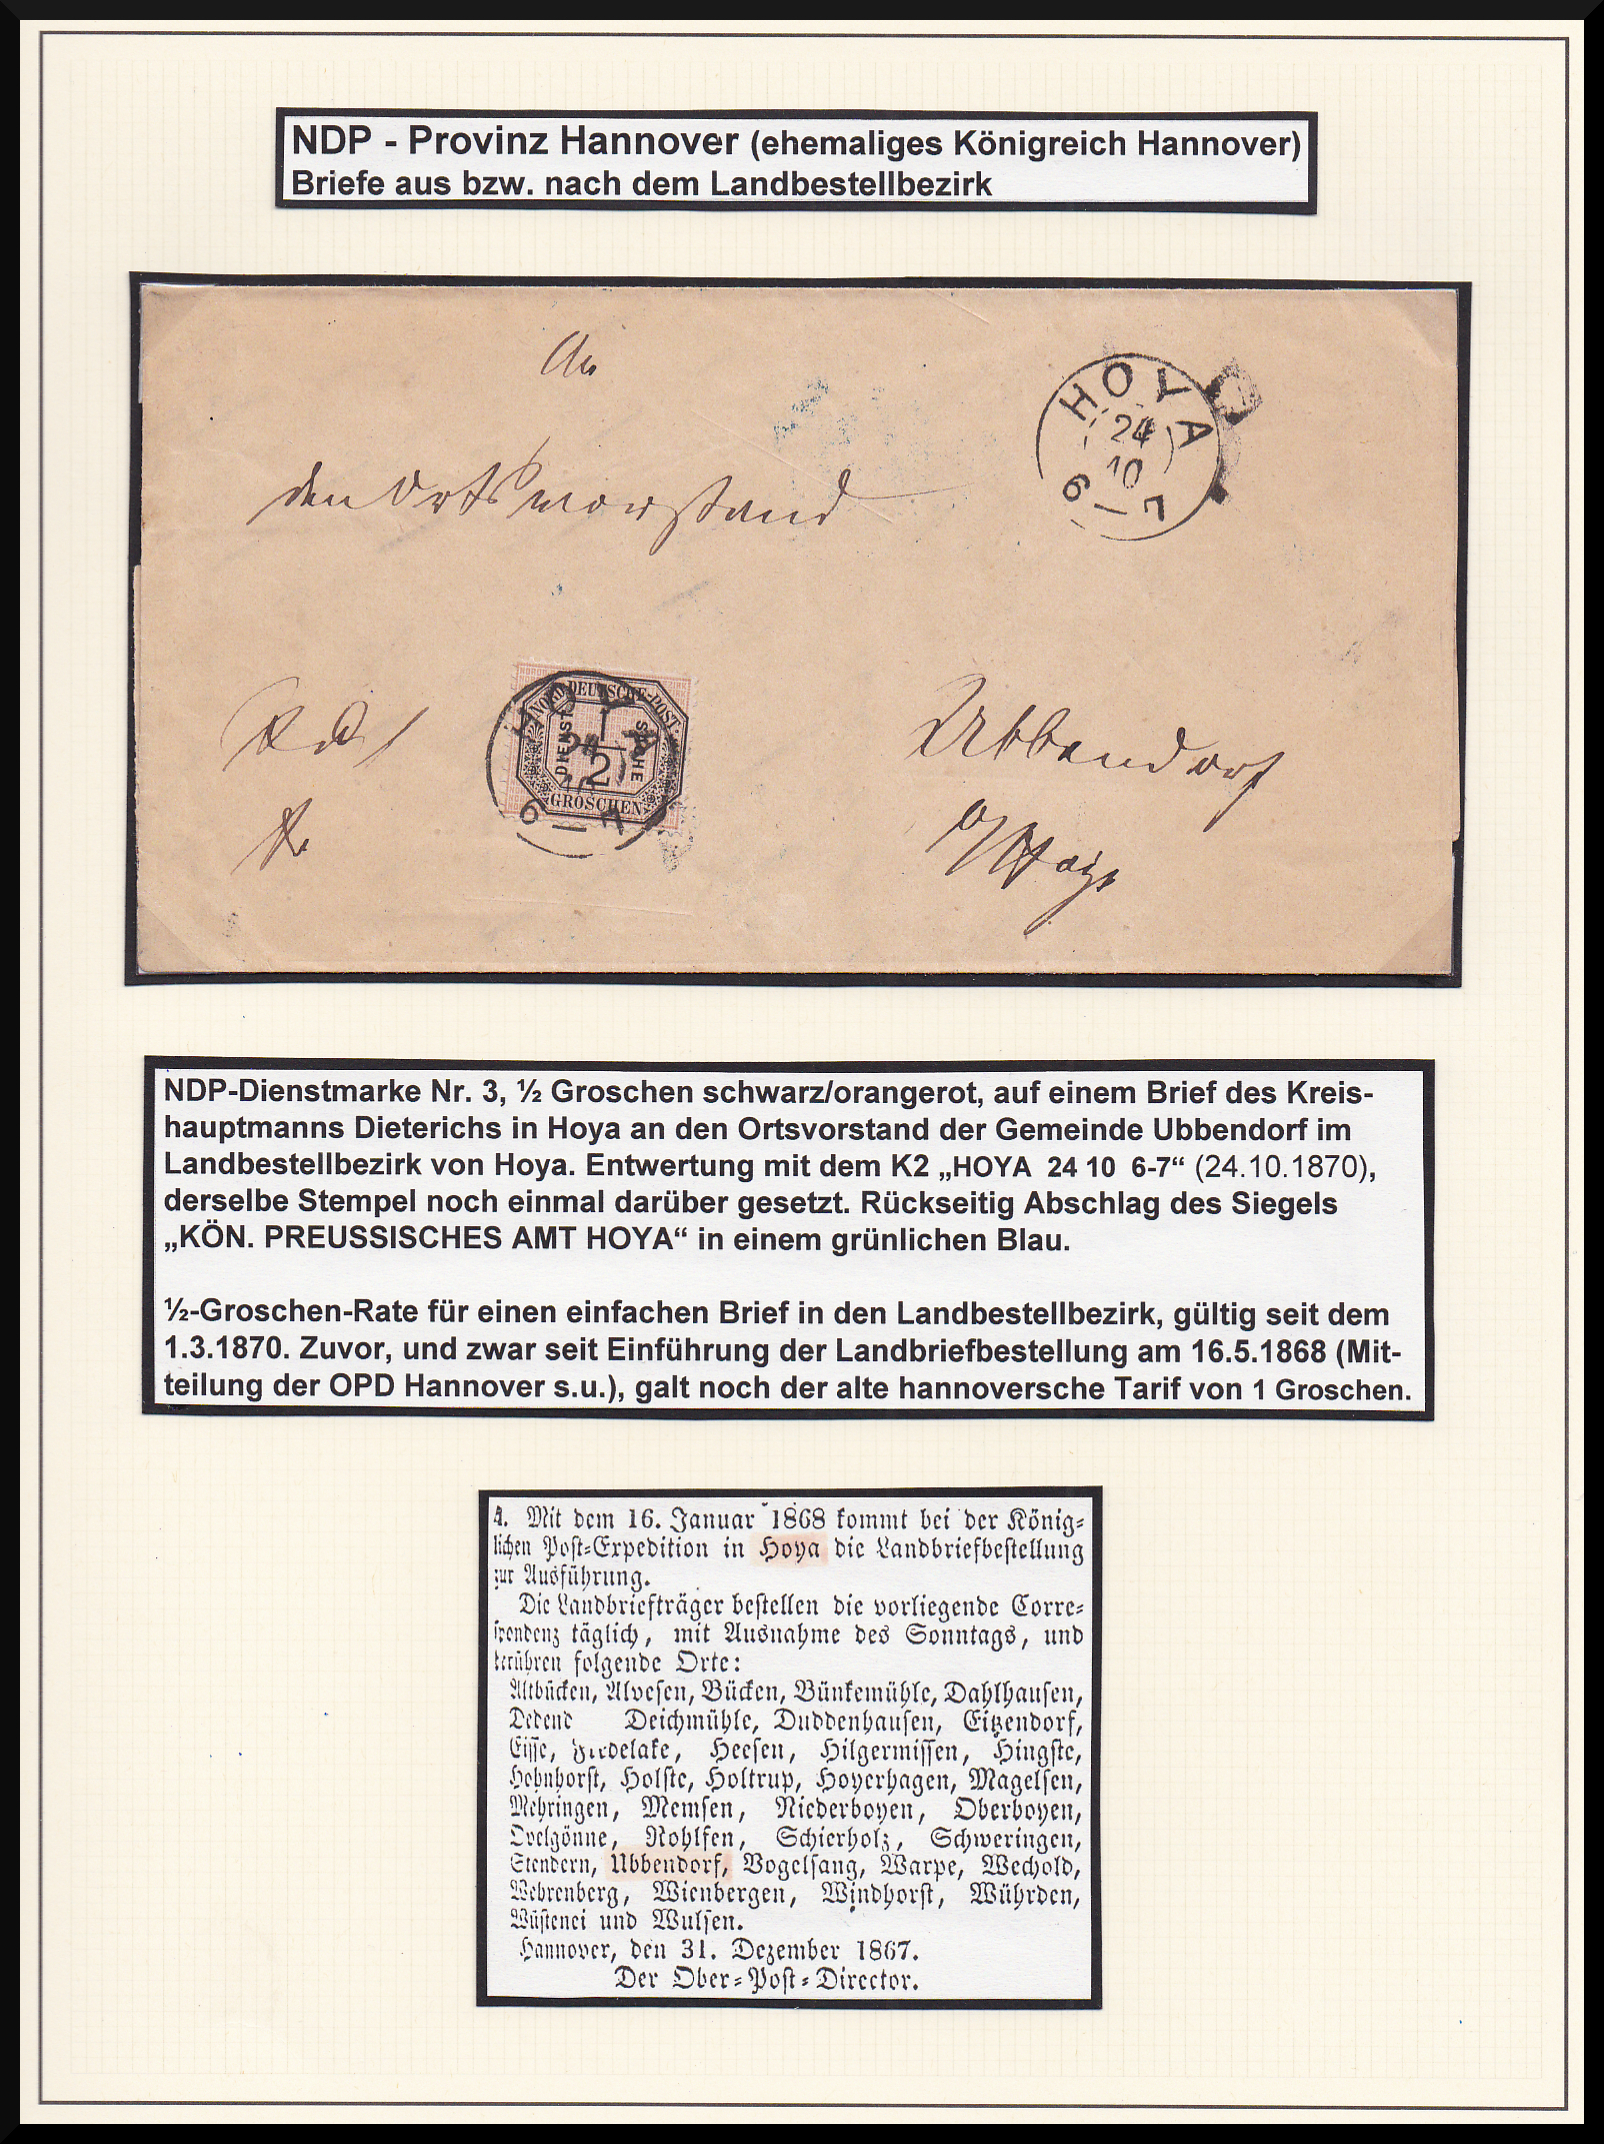 NDP - Provinz Hannover (ehemaliges Königreich Hannover)
Briefe aus bzw. nach dem Landbestellbezirk
An
den Ortsvorstand
HOYA
24
10
6-7
NORDDEUTSCHE-POST
DIENST SACHE
1/2
GROSCHEN
HOYA
24
10
6-7
Ubbendorf
b/Hoya
NDP-Dienstmarke Nr. 3, ½ Groschen schwarz/orangerot, auf einem Brief des Kreis-
hauptmanns Dieterichs in Hoya an den Ortsvorstand der Gemeinde Ubbendorf im
Landbestellbezirk von Hoya. Entwertung mit dem K2 „HOYA 24 10 6-7“ (24.10.1870),
derselbe Stempel noch einmal darüber gesetzt. Rückseitig Abschlag des Siegels
„KÖN. PREUSSISCHES AMT HOYA“ in einem grünlichen Blau.
½-Groschen-Rate für einen einfachen Brief in den Landbestellbezirk, gültig seit dem
1.3.1870. Zuvor, und zwar seit Einführung der Landbriefbestellung am 16.5.1868 (Mit-
teilung der OPD Hannover s.u.), galt noch der alte hannoversche Tarif von 1 Groschen.
4. Mit dem 16. Januar 1868 kommt bei der König-
lichen Post-Expedition in Hoya die Landbriefbestellung
zur Ausführung.
Die Landbriefträger bestellen die vorliegende Corre-
spondenz täglich, mit Ausnahme des Sonntags, und
berühren folgende Orte:
Altbücken, Alvesen, Bücken, Bünkemühle, Dahlhausen,
Deichmühle, Duddenhausen, Eitzendorf,
Heesen, Hilgermissen, Hingste,
Hohnhorst, Holste, Holtrup, Hoyerhagen, Magelsen,
Mehringen, Memsen, Niederboyen, Oberboyen,
Ovelgönne, Nohlfen, Schierholz, Schweringen,
Stendern, Ubbendorf, Vogelsang, Warpe, Wechold,
Wehrenberg, Wienbergen, Windhorst, Wührden,
Wüstenei und Wulsen.
Hannover, den 31. Dezember 1867.
Der Ober-Post-Director.